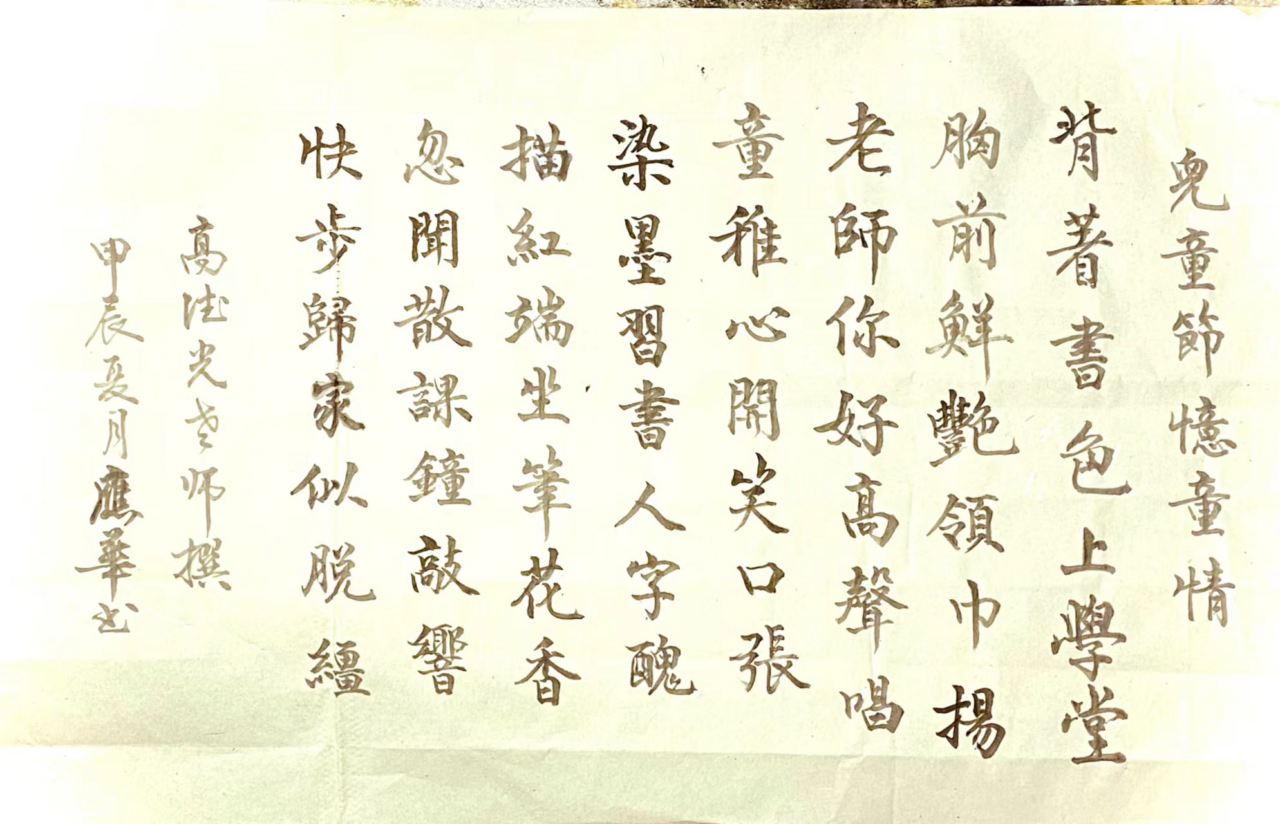 兒童節憶童情
背著書色上學堂
胸前鮮艷領巾揚
老師你好高聲唱
童稚心開笑口張
染墨習書人字醜
描紅端坐筆花香
忽聞散課鐘敲響
快步歸家似脫繮
高法光老师撰
甲辰夏月應華书